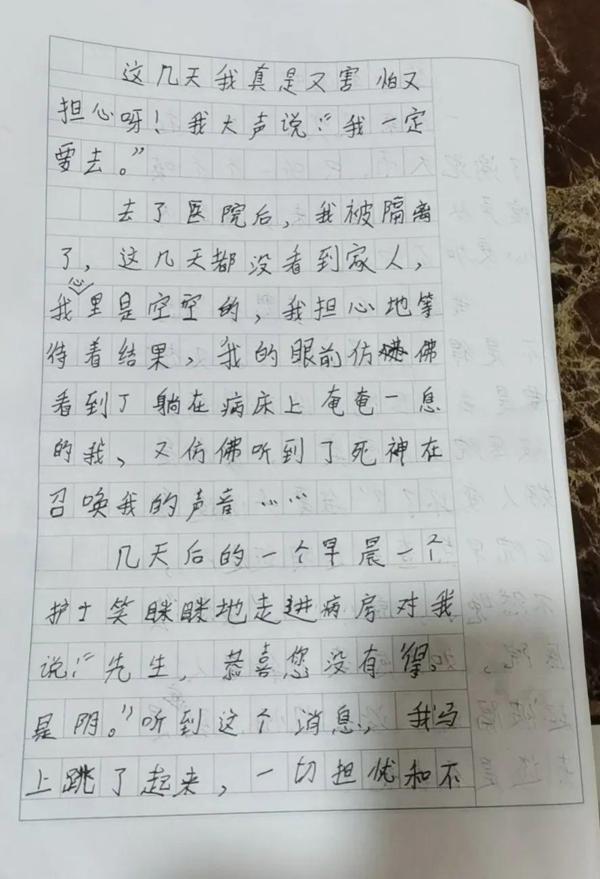 这几天我真是又害怕又
担心呀！我大声说：“我一定
要去。”
去了医院后，我被隔离
了，这几天都没看到家人，
我心里是空空的，我担心地等
待着结果，我的眼前仿佛
看到了躺在病床上奄奄一息
的我、又仿佛听到了死神在
召唤我的声音……
几天后的一个早晨一个
护士笑眯眯地走进病房对我
说：“先生，恭喜您没有得。
是阴。”听到这个消息，我马
上跳了起来，一切担忧和不